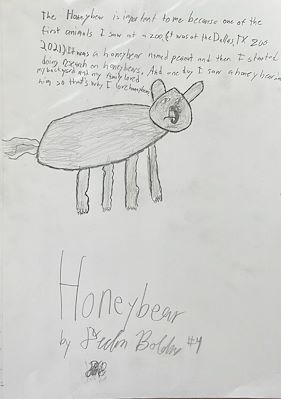 The Honeybear is important to me because one of the
first animals I saw at a zoo. It was at the Dallas, TX Zoo
2021. It was a honeybear named peanut and then I started
doing research on honeybears. And one day I saw a honeybear in
my backyard and my family loved
him so that's why I love honeybears
Honeybear
by Bolden #4